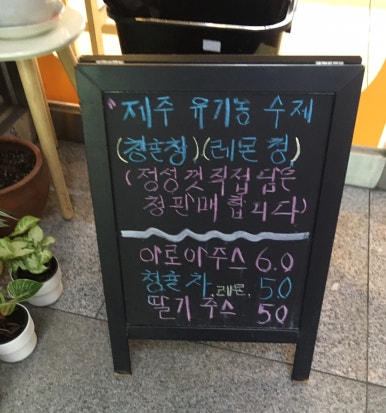 제주 유기농 수제
(청귤청)(레몬 청)
(정성껏 직접 담은
청판매 합니다)
아로아주스 6.0
청귤 차,레몬, 5.0
딸기 주스 50